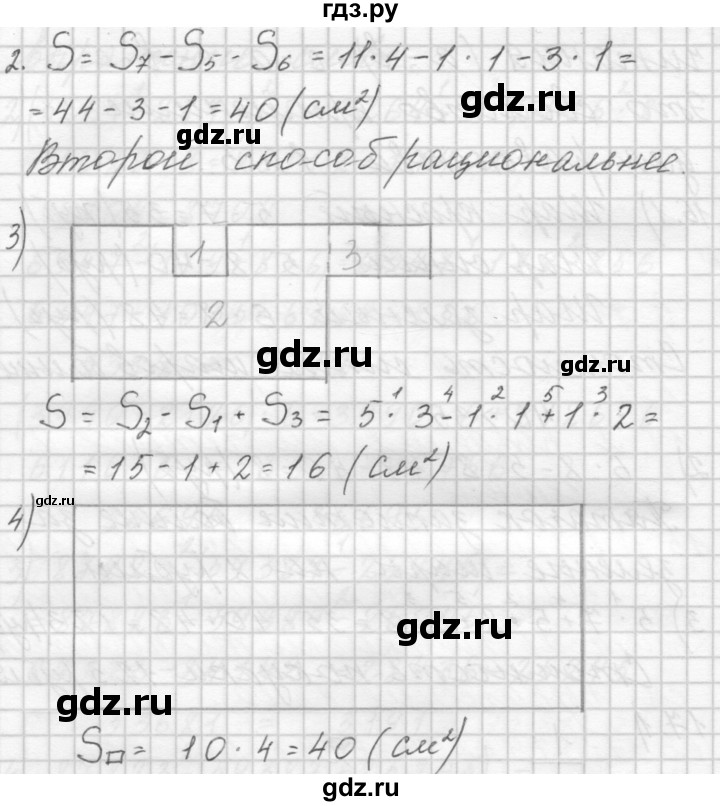 гдз.ру
2. S = S₇ - S₅ - S₆ = 11·4 - 1·1 - 3·1 =
= 44 - 3 - 1 = 40 (см²)
gdz.ru
gdz.ru
Второй способ рациональнее.
3)
1
3
2
gdz.ru
gdz.ru
S = S₂ - S₁ + S₃ = 5 ·¹ 3 -⁴ 1 ·² 1 +⁵ 1 ·³ 2 =
= 15 - 1 + 2 = 16 (см²)
gdz.ru
4)
gdz.ru
gdz.ru
S□ = 10·4 = 40 (см²)
gdz.ru